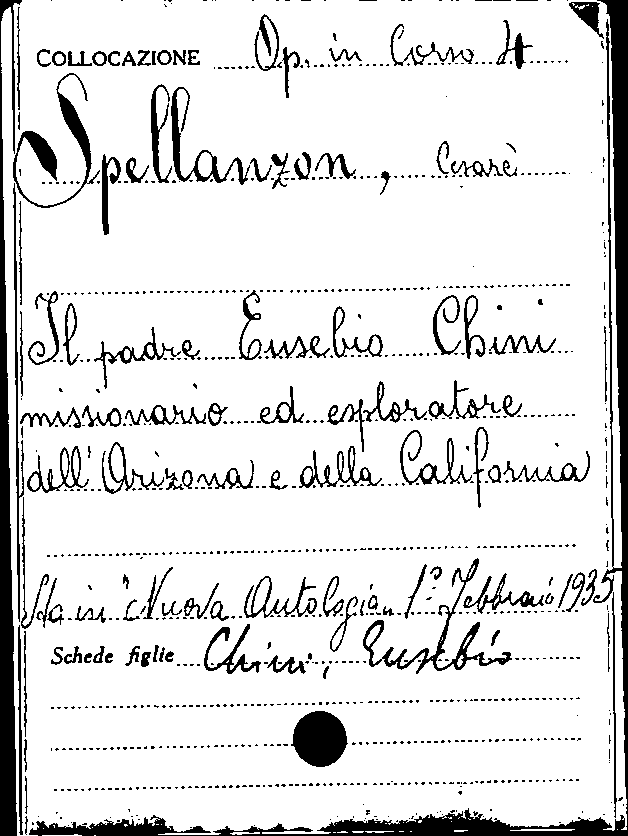 COLLOCAZIONE Op. in Corso 4
Spellanzon, Cesare
Il padre Eusebio Chini
missionario ed esploratore
dell'Arizona e della California
Sta in "Nuova Antologia" 1º Febbraio 1935
Schede figlie Chini, Eusebio